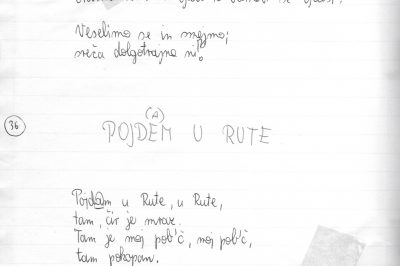 Veselimo se in smejmo;
sreča dolgotrajna ni!
(A)
36 POJDEM U RUTE
Pojdam u Rute, u Rute,
tam, čir je mraz.
Tam je moj pob'č, moj pob'č,
tam pokopan.